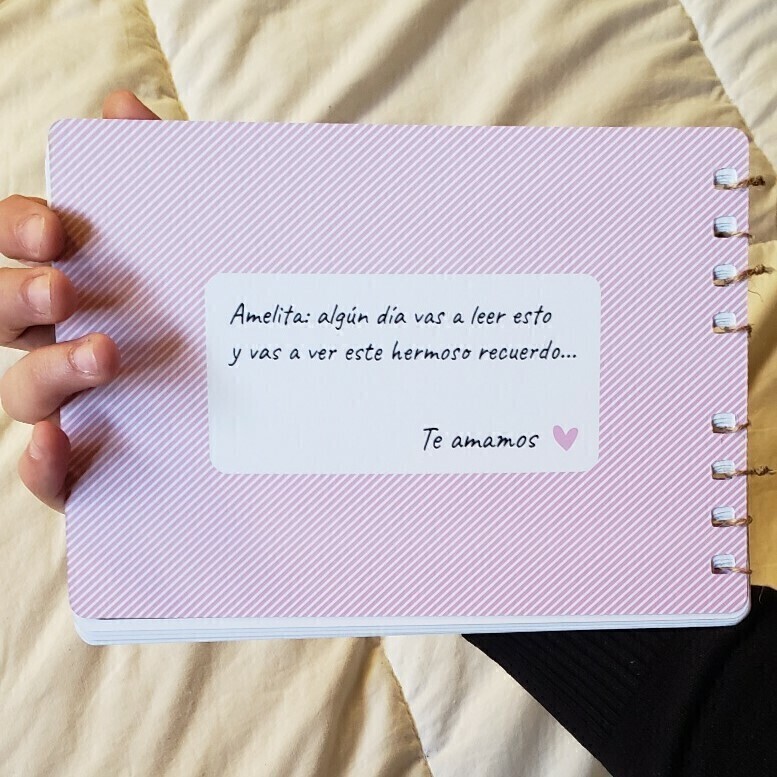 Amelita: algún día vas a leer esto
y vas a ver este hermoso recuerdo...
Te amamos